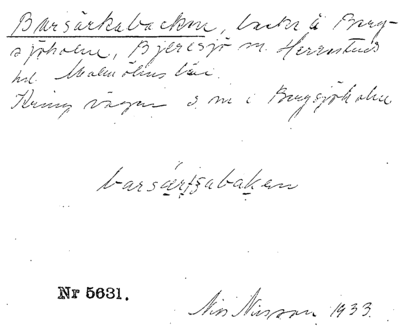 Barsärkabacken, backe å Berg-
sjöholm, Bjeresjö sn. Herrestads
hd. Malmöhus län.
Kring vägen s m i Bergsjöholm
barsärkabaken
Nr 5631.
Nils Nilsson 1933.